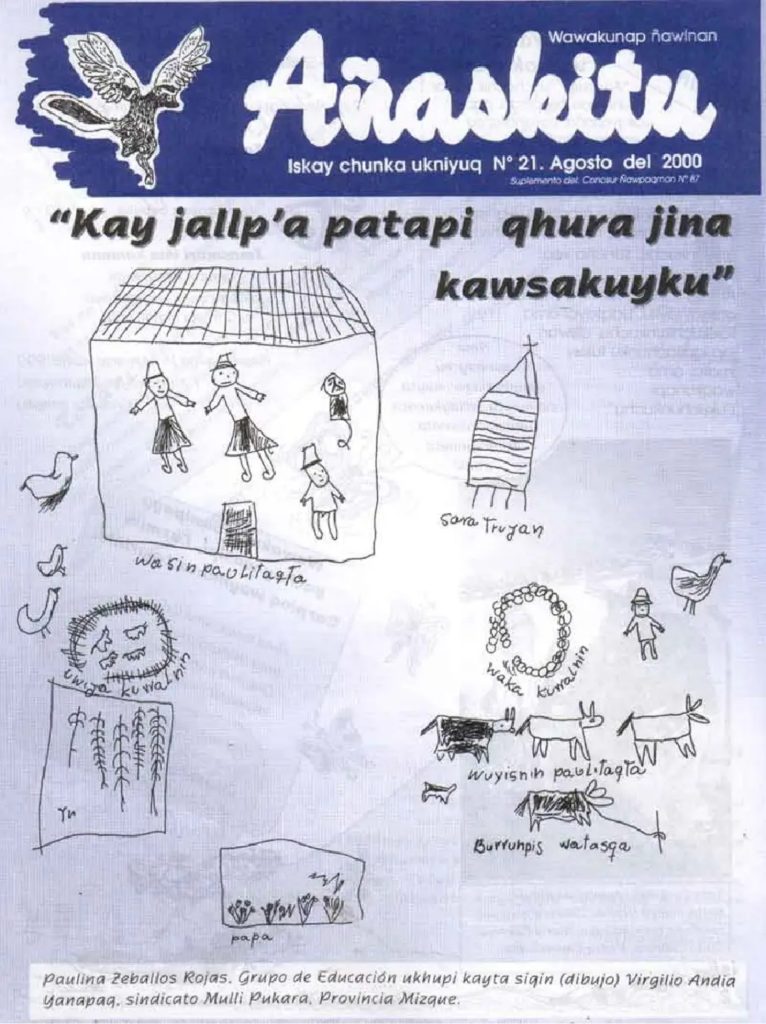 Wawakunap ñawinan
Añaskitu
Iskay chunka ukniyuq N° 21. Agosto del 2000
Suplemento del: Conosur Ñawpaqman N° 87
"Kay jallp'a patapi qhura jina
kawsakuyku"
wasinpaulitaqta
sara Truyan
uwiga kurralnin
waka kurralnin
wuyisnin paulitaqta
Burruhpis watasqa
Yu
papa
Paulina Zeballos Rojas. Grupo de Educación ukhupi kayta siqin (dibujo) Virgilio Andia
yanapaq. sindicato Mulli Pukara. Provincia Mizque.